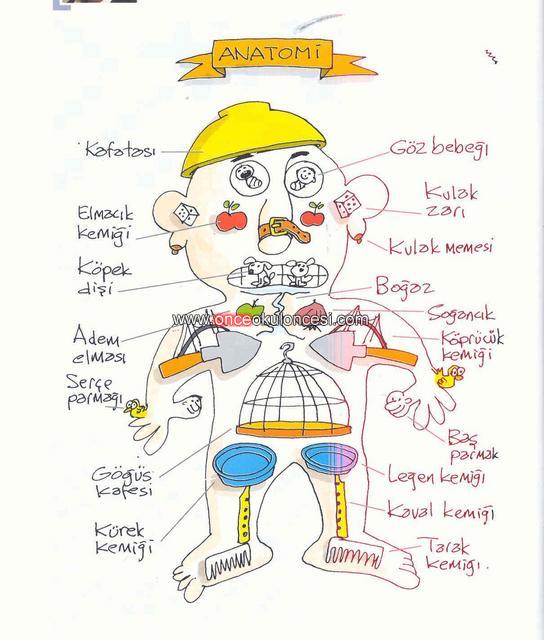 ANATOMİ
Kafatası
Göz bebeği
Elmacık
kemiği
Kulak
zarı
Kulak memesi
Köpek
dişi
Boğaz
www.onceokuloncesi.com
Soğancık
Adem
elması
Köprücük
kemiği
Serçe
parmağı
Baş
parmak
Göğüs
kafesi
Leğen kemiği
Kaval kemiği
Kürek
kemiği
Tarak
kemiği.